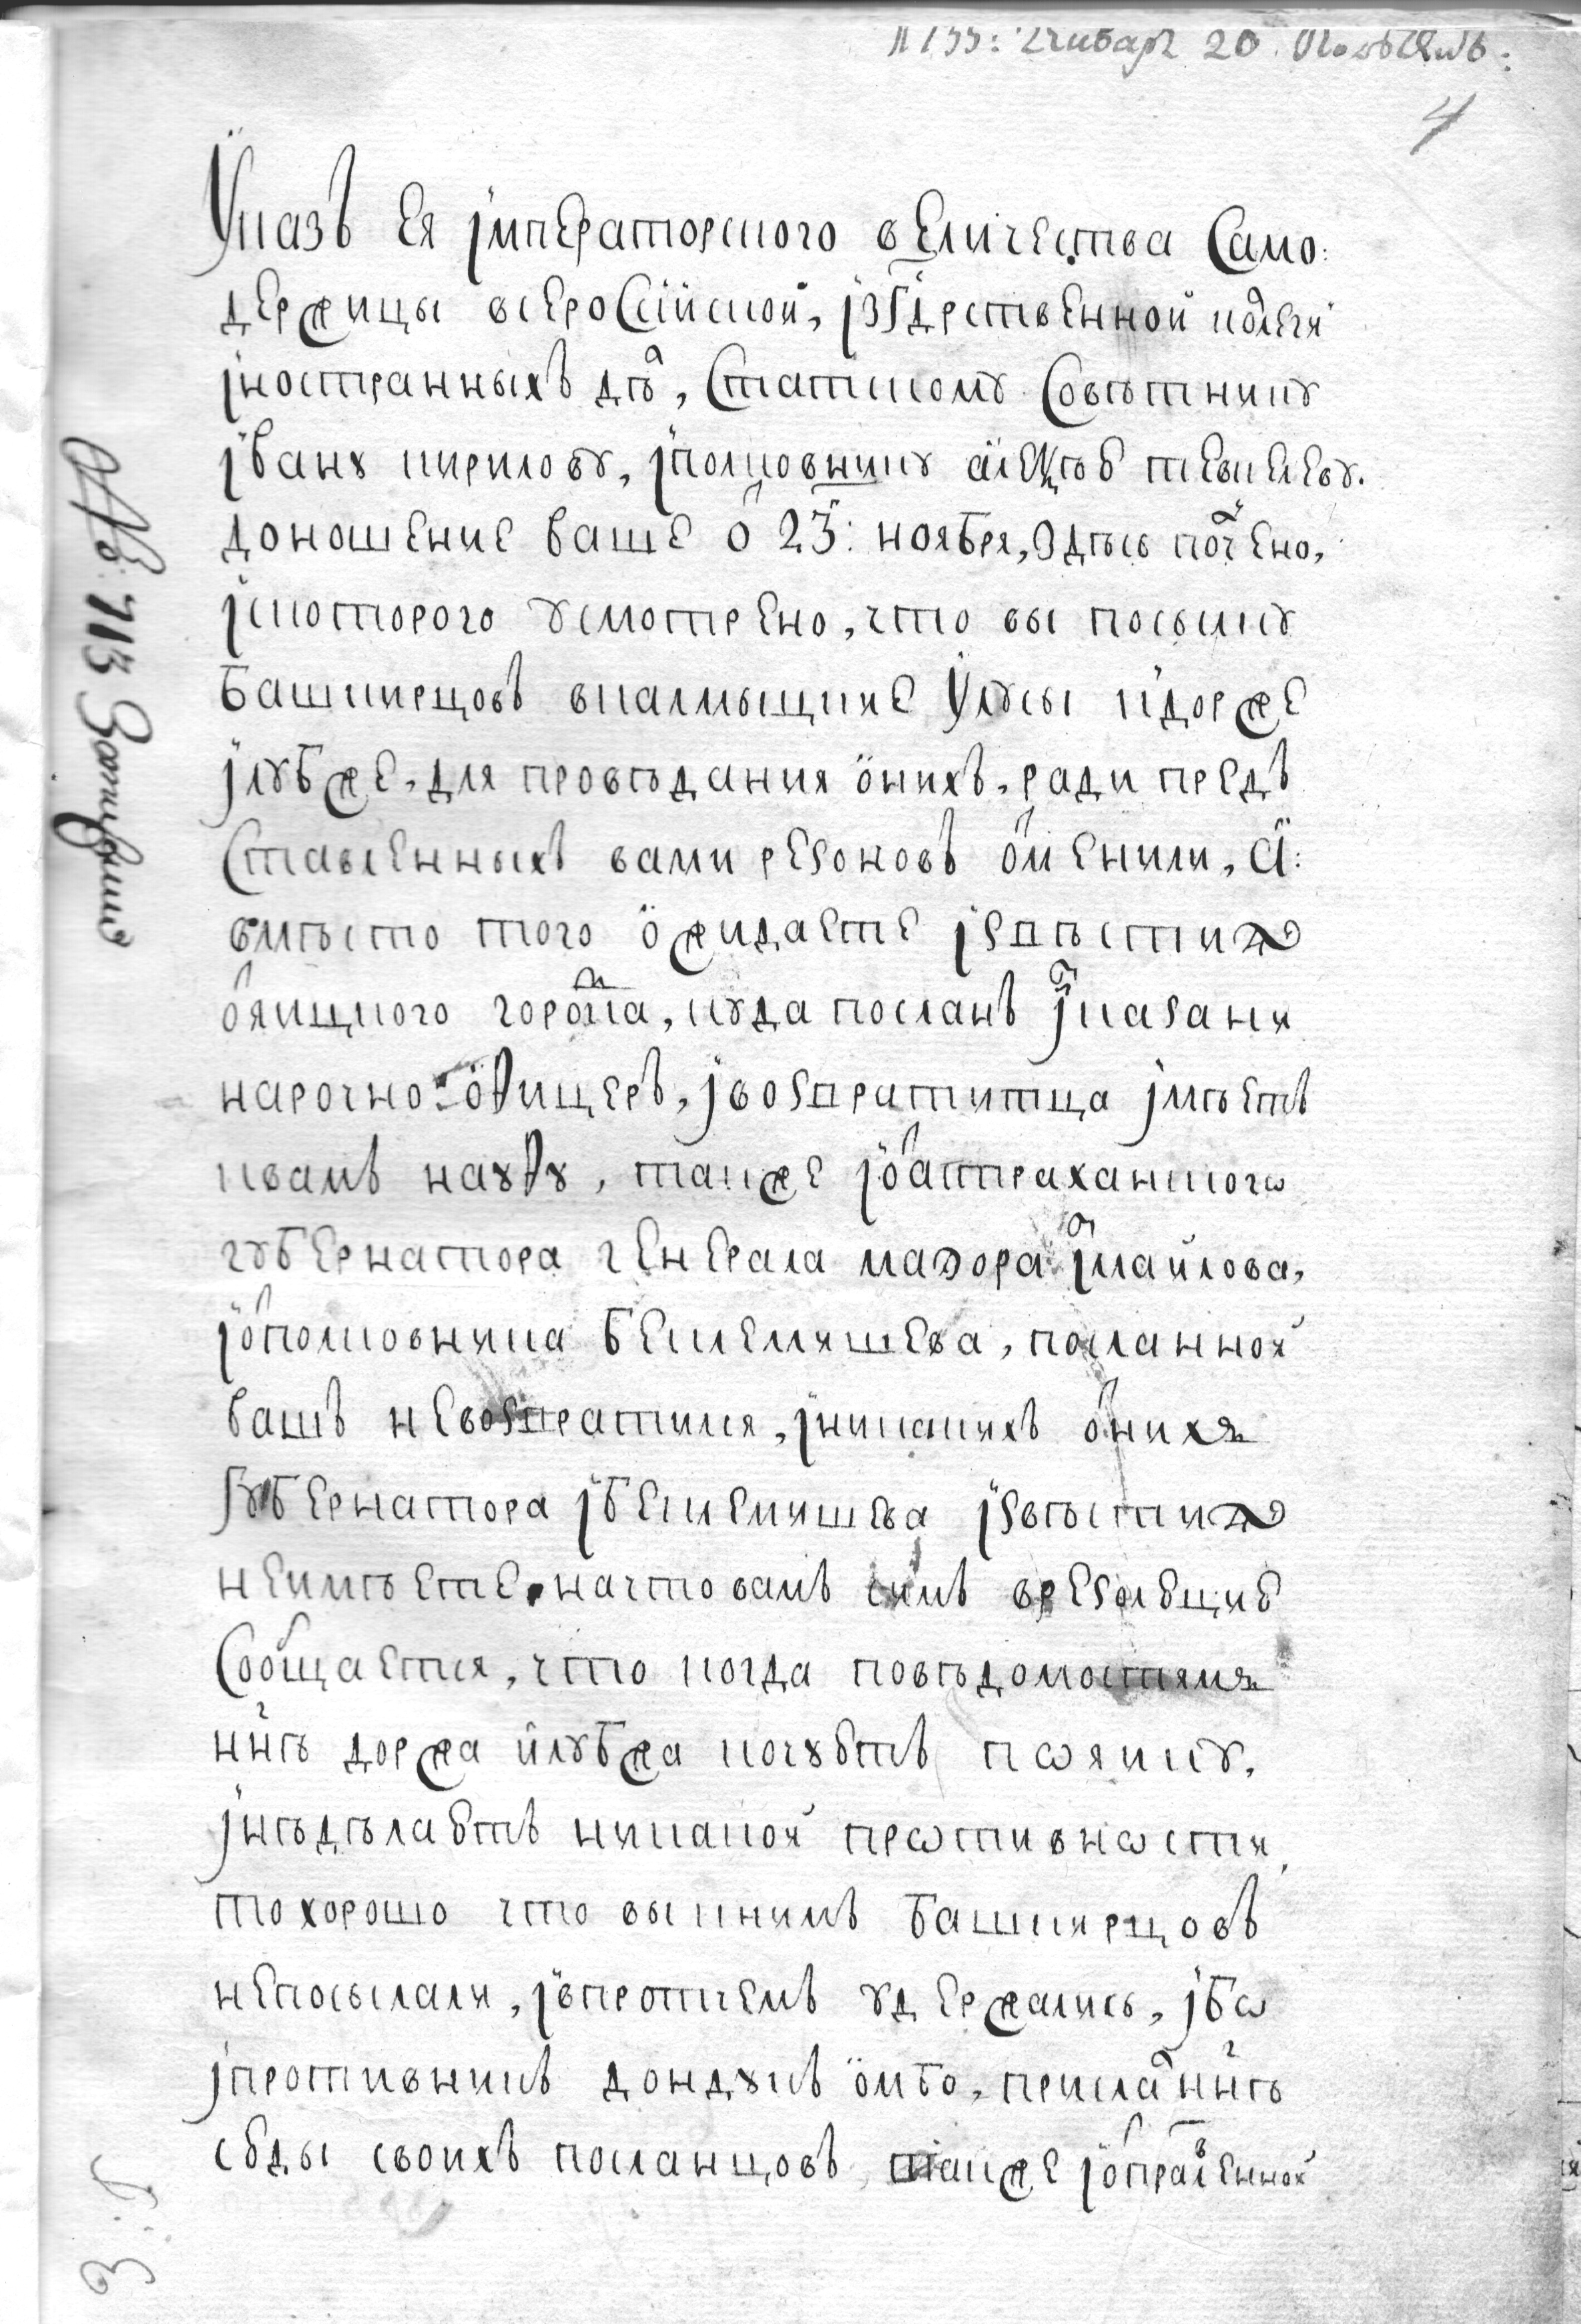 генваря 20
4
Указъ ея императорского величества Само:
держицы всеросийской, изгдрственной колегѣи
иностранныхъ дѣлъ, Статскому Советнику
ивану кирилову, иполковнику алеѯѣю тевкелеву.
доношение ваше о 23: ноября, здѣсь полчено,
искоторого усмотрено, что вы посылку
башкирцовъ вкалмыцкие улусы кдорже
илубже, для проведания оныхъ, ради предъ
ставленныхъ вами резоновъ отменили, а:
вместо того ожидаете известия
отяицкого городка, куда посланъ исказани
нарочно: офицеръ, ивозвратитца иметъ
квамъ науфу, также иотастраханского
губернатора генерала маэора измайлова,
иотполковника беклемишева, посланной
вашъ невозвратился, иникакихъ отнихъ
губернатора ибеклемишева известия
неимеете. начтовамъ симъ врезолюцие
Сообщается, что когда поведомостямъ
ннѣ доржа илубжа кочуютъ пояику,
инеделаютъ никакой противности,
тохорошо что выкнимъ башкирцовъ
непосылали, ивпротчемъ удержались, ибо
ипротивникъ дондукъ омбо, прислалъ ннѣ
сюды своихъ посланцовъ также иотправленной
№ 713 Записавъ
3